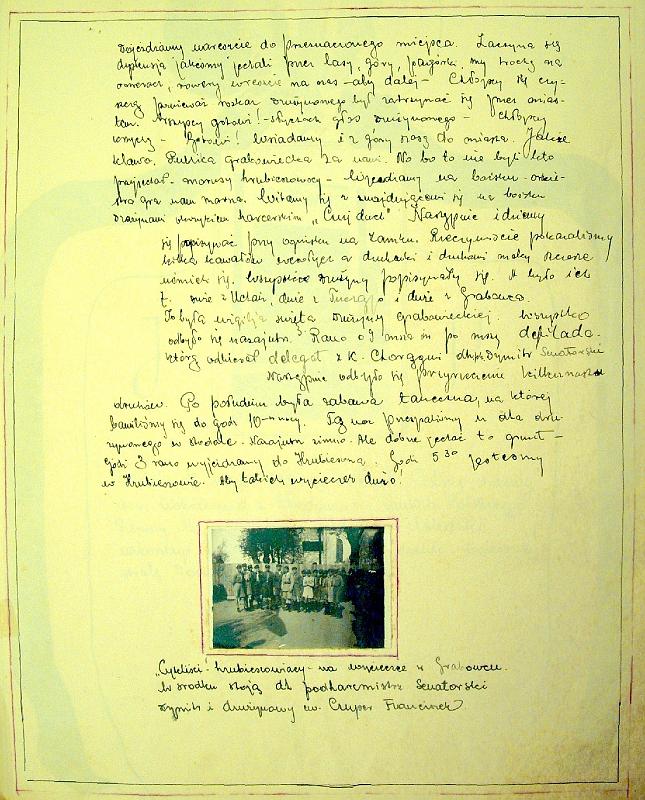 Dojeżdżamy wreszcie do przeznaczonego miejsca. Zaczyna się
dyskusja jakeśmy jechali przez lasy, góry, pagórki, my trochę na
rowerach, rowery wreszcie na nas - aby dalej - Chłopcy się
ponieważ rozkaz drużynowego był zatrzymać się przed mias-
tem. Wszyscy gotowi! - słychać głos drużynowego - chłopcy
wszyscy - Gotowi! Wsiadamy i z góry do miasta. Jakże
klawo. Publika grabowiecka za nami. No bo to nie byli kto
przyjechał - morusy hrubieszowscy - Wjeżdżamy na boisko - orkie-
stra gra nam marsza. Witamy się z znajdującemi się na boisku
drużynami okrzykiem harcerskim "Czuj duch" Następnie idziemy
się popisywać przy ognisku na Zamku. Rzeczywiście pokazaliśmy
kilka kawałów druhenki i druhowie mieli szczere
uśmieli się. Wszystkie drużyny popisywały się. A było ich
7. dwie z Uchań, dwie z i dwie z Grabowca.
To była wigilja święta drużyny Grabowieckiej. Wszystko
odbyło się nazajutrz. Rano o 9 msza św po mszy defilada.
którą odbierał delegat z K. Chorągwi dh. Dymitr Senatorski
Następnie odbyło się przyrzeczenie kilkunastu
druhów. Po południu była zabawa taneczna, na której
bawiliśmy się do godz 10-
w stodole. Nazajutrz zimno. Ale dobrze jechać to grunt -
Godz 3 rano wyjeżdżamy do Hrubieszowa. Godz 5 30 jesteśmy
w Hrubieszowie. Aby takich wycieczek dużo.
"Cykliści" hrubieszowiacy - na wycieczce w Grabowcu.
W środku stoją dh podharcmistrz Senatorski
Dymitr i drużynowy ćw. Czuper Franciszek